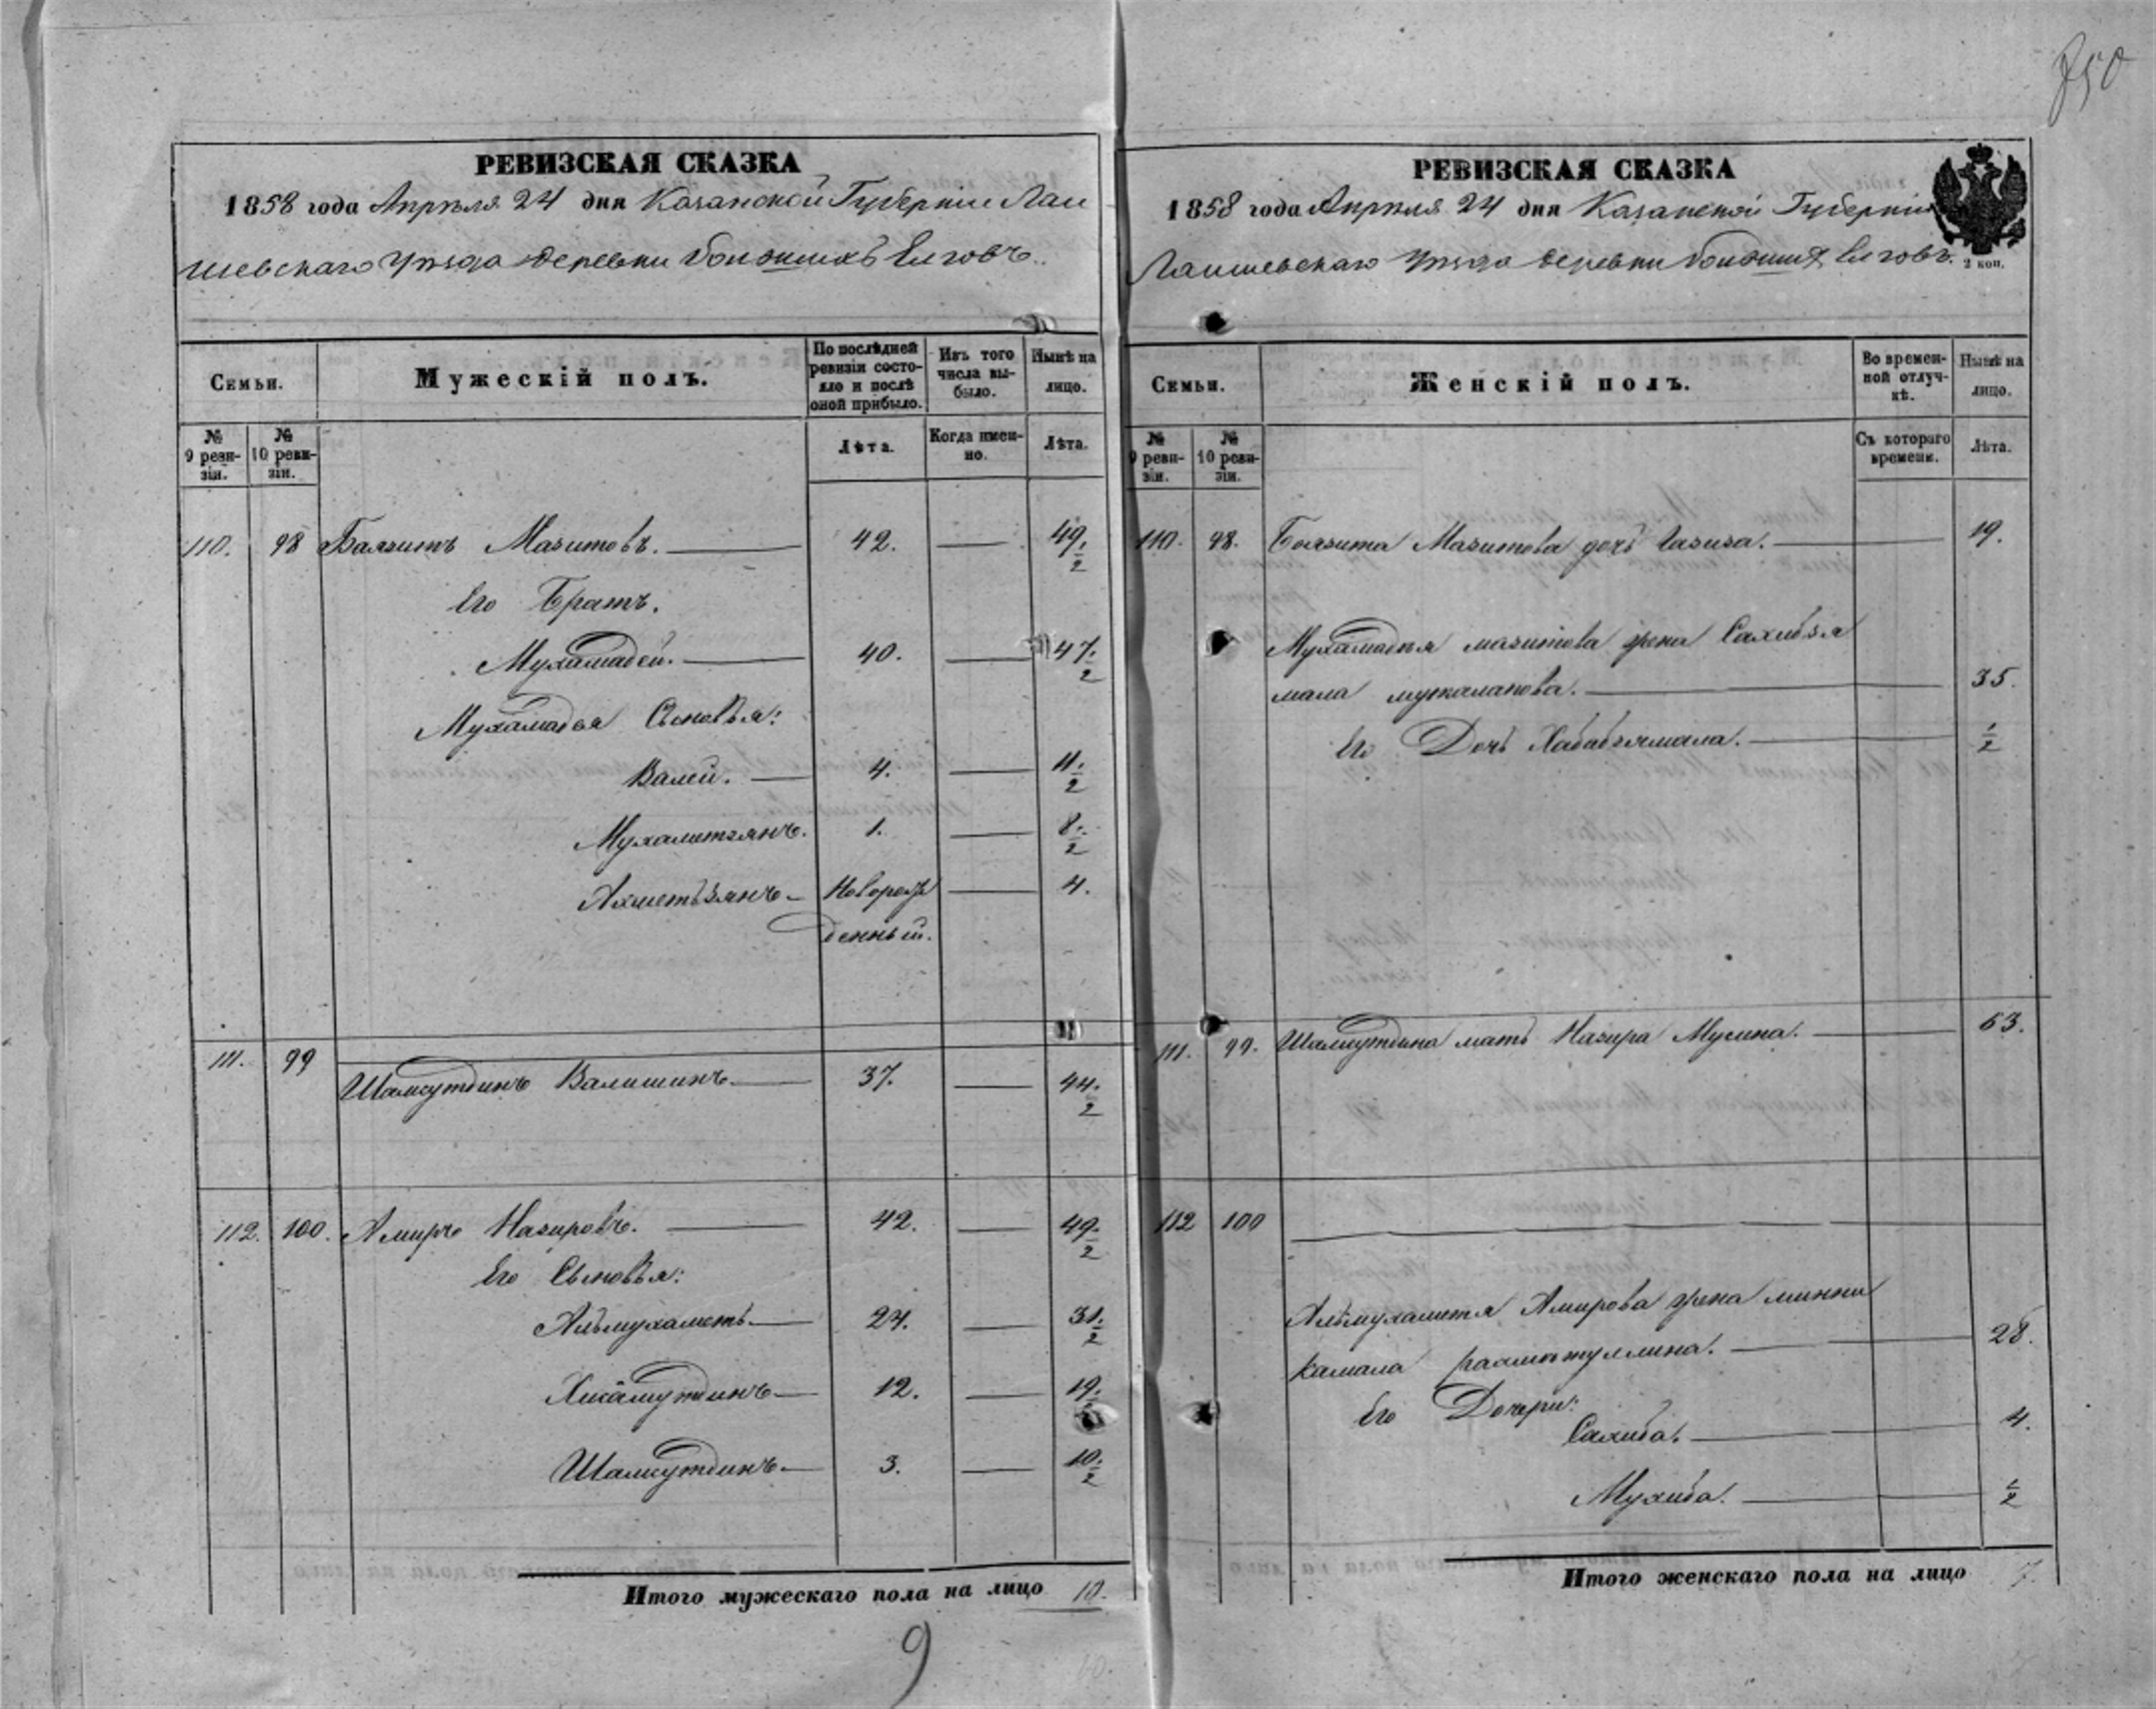 850
РЕВИЗСКАЯ СКАЗКА
1858 года Апрѣля 24 дня Казанской Губерніи Лаи
шевскаго уѣзда деревни
Семьи.
Мужескій полъ.
По послѣдней ревизіи состояло и послѣ оной прибыло.
Изъ того числа выбыло.
Нынѣ на лицо.
№ 9 ревизіи.
№ 10 ревизіи.
Лѣта.
Когда именно.
Лѣта.
110. 98 Баязитъ Мазитовъ. 42. 49. 1/2
Его Братъ.
Мухамадей. 40. 47. 1/2
Мухамадея Сыновья:
Валей. 4. 11. 1/2
Мухаметзянъ. 1. 8. 1/2
Ахметьзянъ Новорож 4.
денный.
111. 99
Шамсутдинъ Валишинъ 37. 44. 1/2
112. 100. Амиръ Назировъ. 42. 49. 1/2
Его Сыновья:
Альмухаметь 24. 31. 1/2
Хисамутдинъ 12. 19.
Шамсутдинъ 3. 10. 1/2
Итого мужескаго пола на лицо 10.
9
10.
РЕВИЗСКАЯ СКАЗКА
1858 года Апрѣля 24 дня Казанской Губерніи
Лаишевскаго уѣзда деревни
2 коп.
Семьи.
Женскій полъ.
Во временной отлучкѣ.
Нынѣ на лицо.
№ 9 ревизіи.
№ 10 ревизіи.
Съ котораго времени.
Лѣта.
110. 98. Боязита Мазитова дочь Газиза. 19.
Мухамадея мазитова жена Сахибзя
мала 35.
Его Дочь Хабабзямала. 1/2
111. 99. Шамсутдина мать Назира Мусина. 63.
112 100
Альмухаметя Амирова жена минни
камала рахматуллина. 28.
Его Дочери:
Сахиба. 4.
Мухиба. 1/2
Итого женскаго пола на лицо 7.